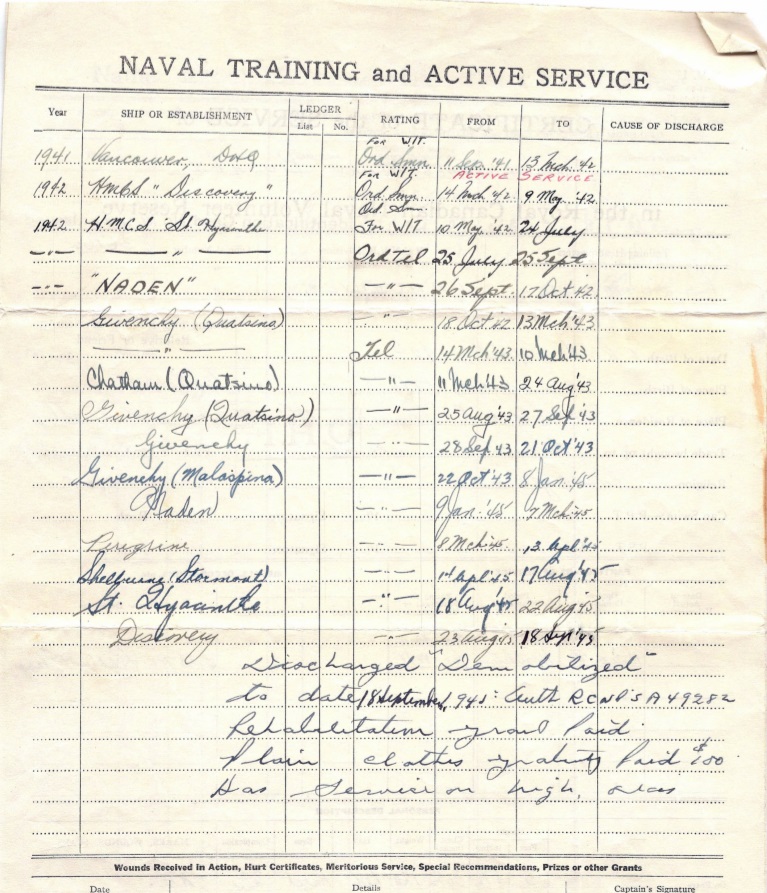 NAVAL TRAINING and ACTIVE SERVICE
Year SHIP OR ESTABLISHMENT LEDGER List No. RATING FROM TO CAUSE OF DISCHARGE
For W/T.
1941 Vancouver, DHQ Ord Smn 11 '41 13 Mch '42
For W/T. ACTIVE SERVICE
1942 HMCS "Discovery" Ord Smn 14 Mch '42 9 May '42
Ord. Smn
1942 HMCS St. Hyacinthe For W/T 10 May '42 24 July
—"— —"— Ord Tel 25 July 25 Sept
—"— "NADEN" —"— 26 Sept. 17 Oct 42
Givenchy (Quatsino) —"— 18 Oct 42 13 Mch '43
—"— Tel 14 Mch '43 10 Mch '43
Chatham (Quatsino) —"— 11 Mch '43 24 Aug '43
Givenchy (Quatsino) —"— 25 Aug '43 27 Sep '43
Givenchy —"— 28 Sep '43 21 Oct '43
Givenchy (Malaspina) —"— 22 Oct '43 8 Jan '45
Naden —"— 9 Jan '45 7 Mch '45
Peregrine 8 Mch 45 13 Apl '45
Shelburne (Stormont) —"— 14 Apl '45 17 Aug '45
St. Hyacinthe —"— 18 Aug '45 22 Aug 45
Discovery —"— 23 Aug 45 18 Sept '45
Discharged "Demobilized"
to date 18 September, 1945: Auth RCNP'S A 49282
Rehabilitation grant Paid
Plain clothes gratuity Paid $100
Has Service on high seas
Wounds Received in Action, Hurt Certificates, Meritorious Service, Special Recommendations, Prizes or other Grants
Date Details Captain's Signature